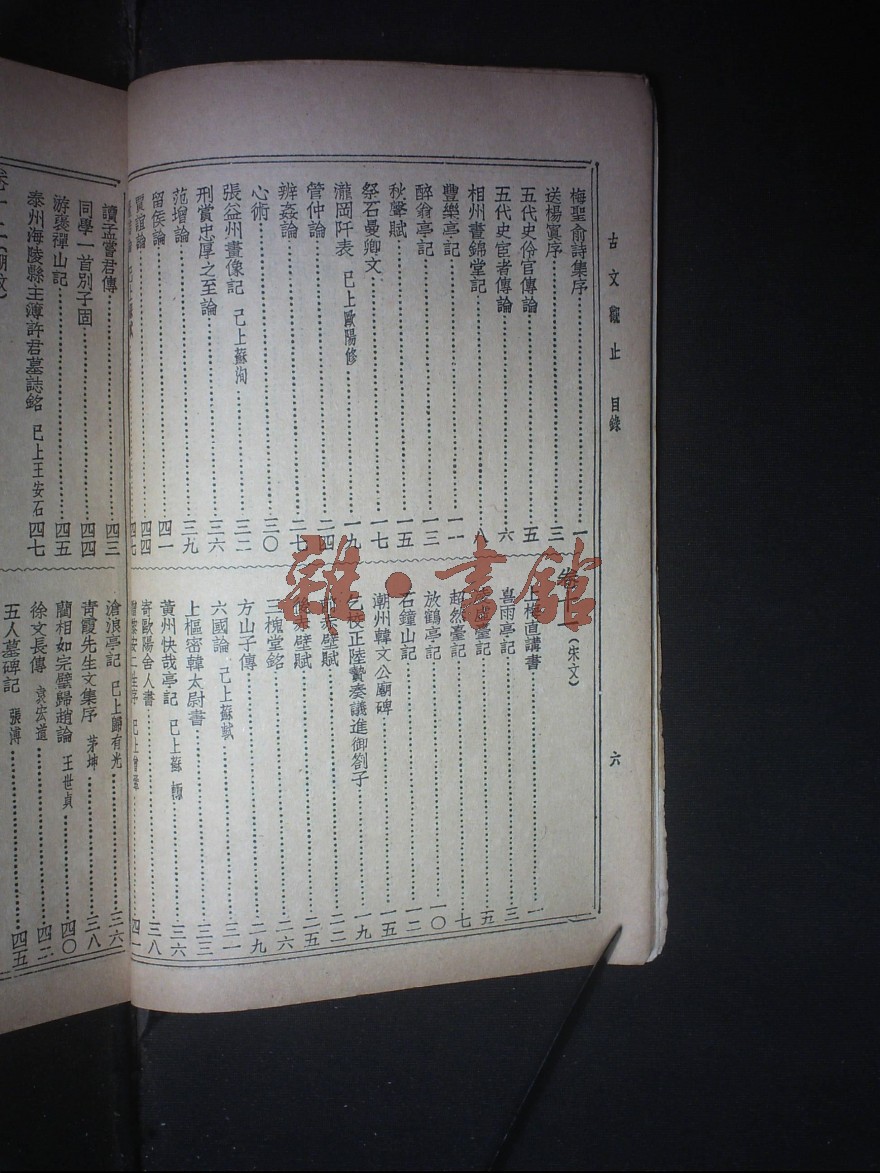 古文觀止 目錄 六
梅聖俞詩集序 一
送楊寘序 三
五代史伶官傳論 五
五代史宦者傳論 六
相州晝錦堂記 八
豐樂亭記 一一
醉翁亭記 一三
秋聲賦 一五
祭石曼卿文 一七
瀧岡阡表 已上歐陽修 一九
管仲論 二四
辨姦論 二七
心術 三〇
張益州畫像記 已上蘇洵 三二
刑賞忠厚之至論 三六
范增論 三九
留侯論 四一
賈誼論 四四
卷十一(宋文)
上梅直講書 一
喜雨亭記 三
臺記 五
超然臺記 七
放鶴亭記 一〇
石鐘山記 一二
潮州韓文公廟碑 一五
乞校正陸贄奏議進御劄子 一九
前赤壁賦 二二
後赤壁賦 二五
三槐堂銘 二六
方山子傳 二九
六國論 已上蘇軾 三一
上樞密韓太尉書 三三
黃州快哉亭記 已上蘇轍 三六
寄歐陽舍人書 三八
四一
讀孟嘗君傳 四三
同學一首別子固 四四
游褒禪山記 四五
泰州海陵縣主簿許君墓誌銘 已上王安石 四七
卷十二
滄浪亭記 已上歸有光 三六
青霞先生文集序 茅坤 三八
藺相如完璧歸趙論 王世貞 四〇
徐文長傳 袁宏道 四二
五人墓碑記 張溥 四五
雜·書館